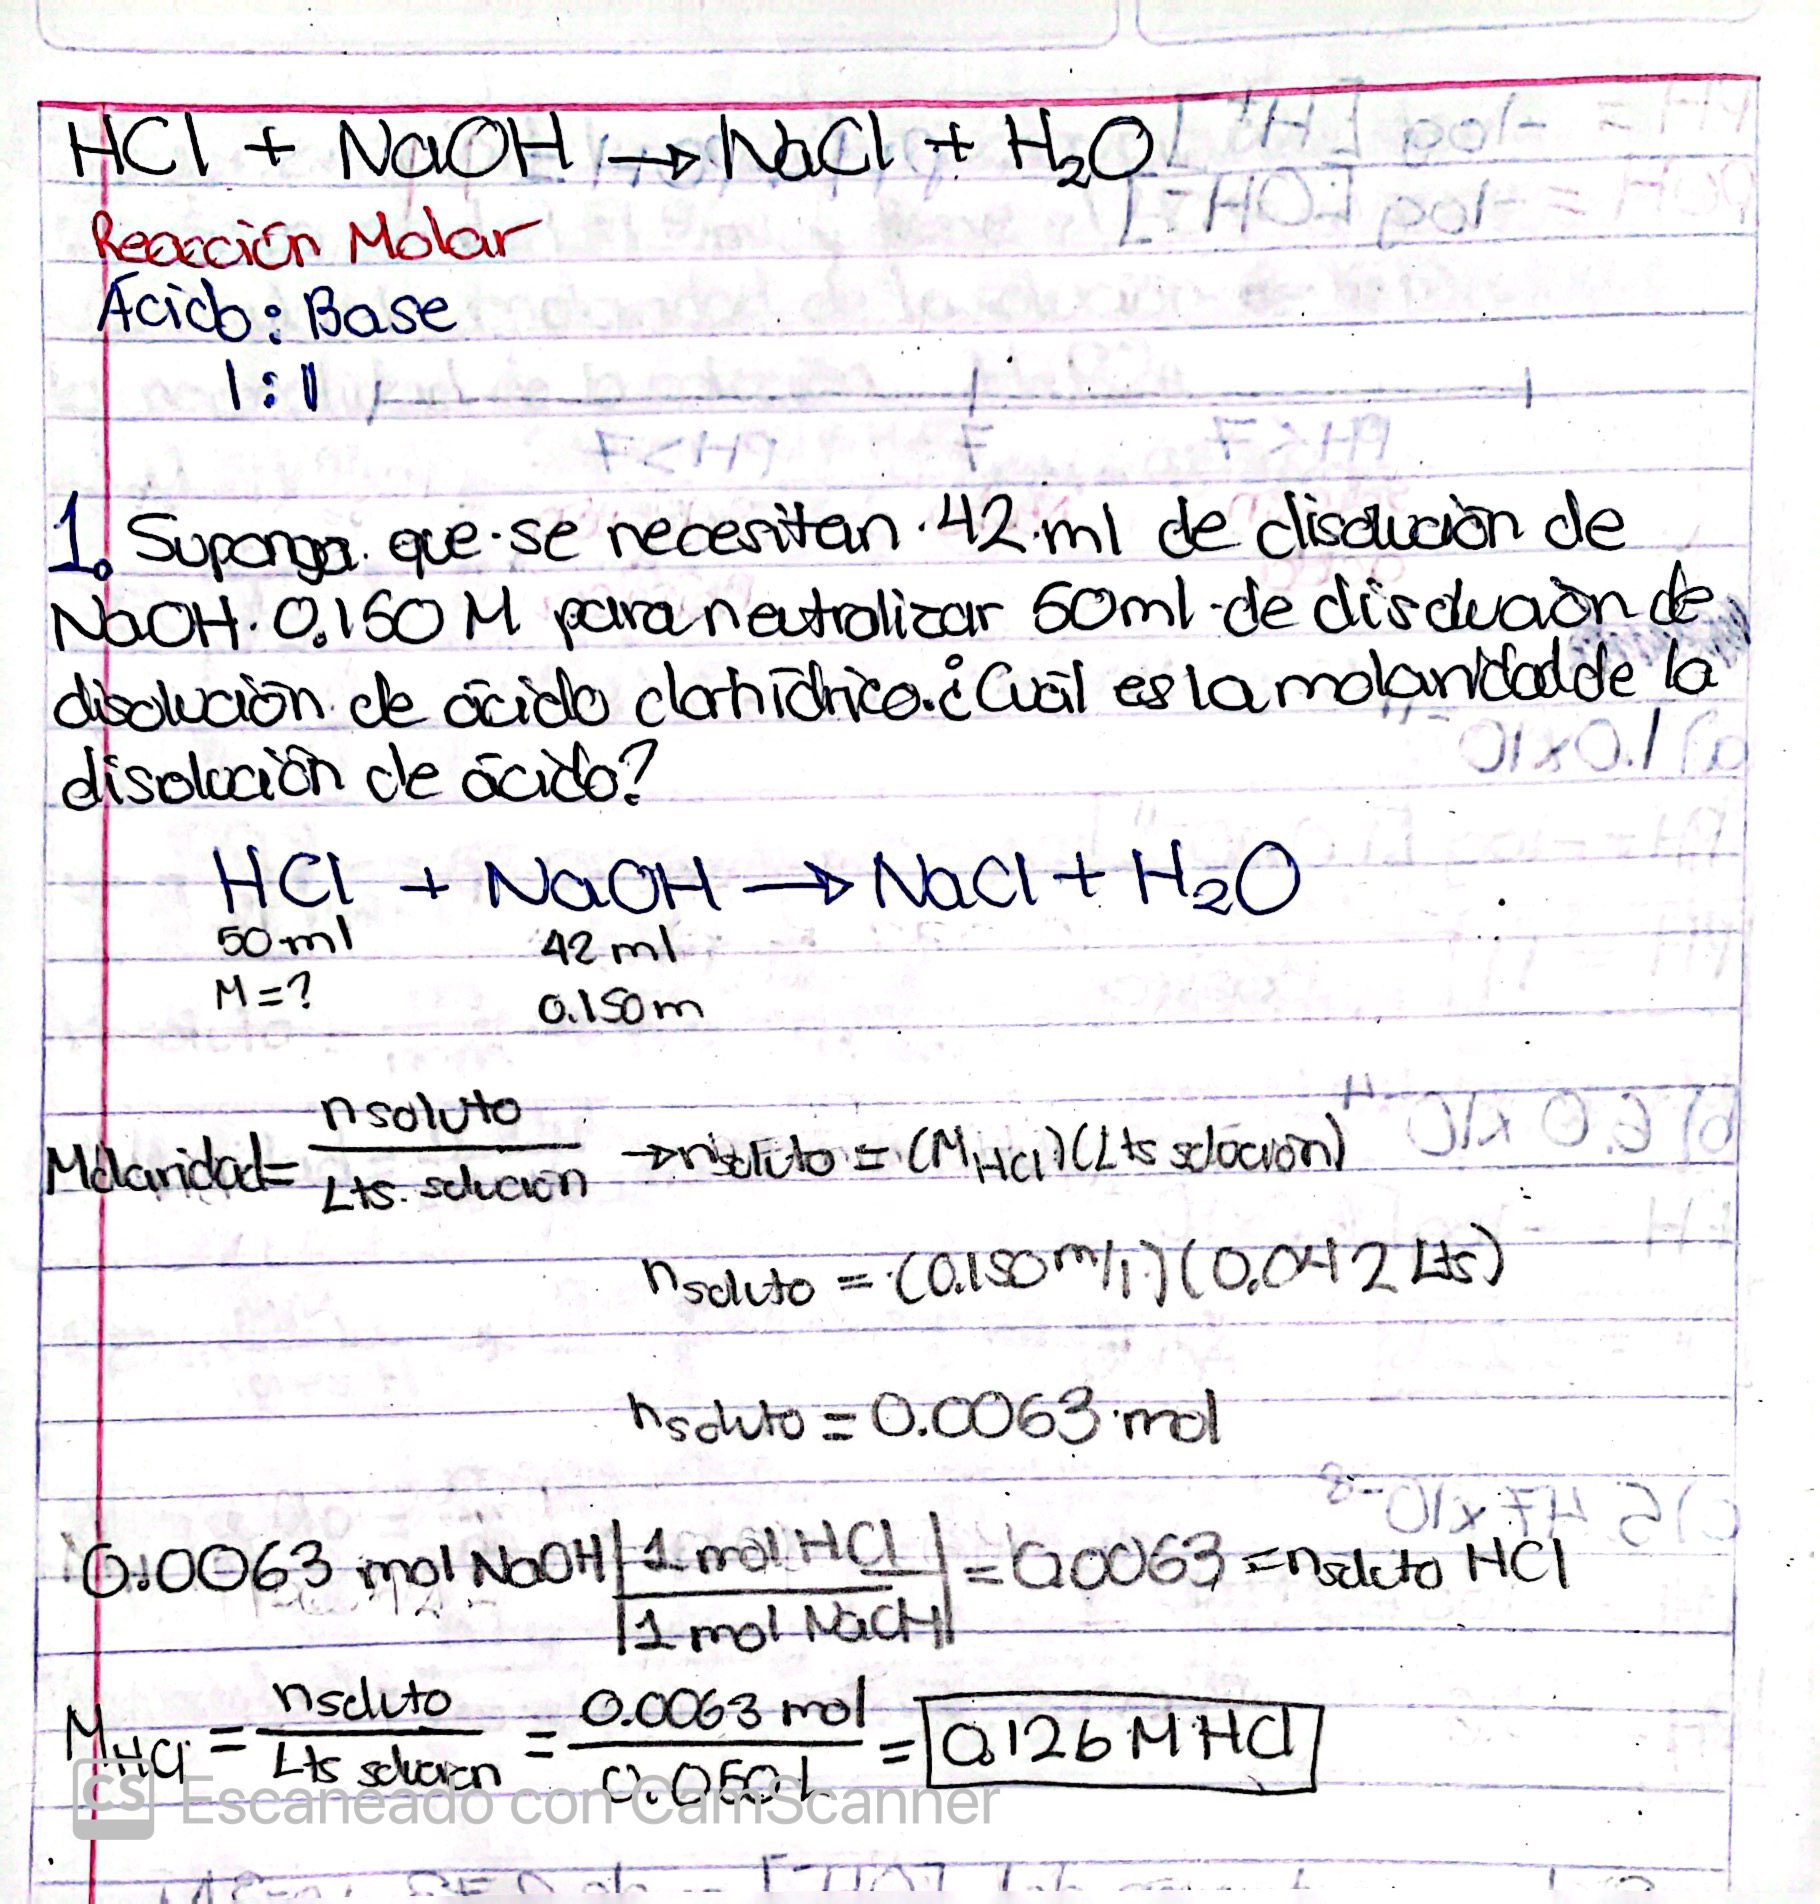 HCl + NaOH → NaCl + H₂O
Reacción Molar
Ácido : Base
1 : 1
1. Suponga que se necesitan 42 ml de disolución de
NaOH 0.150 M para neutralizar 50ml de disolución de
disolución de ácido clorhídrico. ¿Cuál es la molaridad de la
disolución de ácido?
HCl + NaOH → NaCl + H₂O
50 ml 42 ml
M = ? 0.150 m
Molaridad = n soluto / Lts. solución → n soluto = (M HCl) (Lts solución)
n soluto = (0.150 m/l) (0.042 Lts)
n soluto = 0.0063 mol
0.0063 mol NaOH | 1 mol HCl / 1 mol NaOH | = 0.0063 = n soluto HCl
M HCl = n soluto / Lts solución = 0.0063 mol / 0.050 L = 0.126 M HCl
CS Escaneado con CamScanner